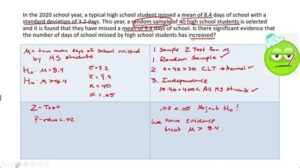 In the 2020 school year, a typical high school student missed a mean of 8.4 days of school with a
standard deviation of 3.2 days. This year, a random sample of 40 high school students is selected
and it is found that they have missed a mean of 9.4 days. Is there significant evidence that
the number of days of school missed by high school students has increased?
μ = how mean days of school missed
by HS students
H₀: μ = 8.4
Hₐ: μ > 8.4
σ = 3.2
x̄ = 9.4
n = 40
α = .05
1 Sample Z Test for μ
1. Random Sample ✓
2. n = 40 > 30 CLT ≈ Normal ✓
3. Independence
10·40 = 400 ≤ All HS Students ✓
Z-Test
P-value = .02
.02 < .05 Reject H₀!
We have evidence
that μ > 8.4